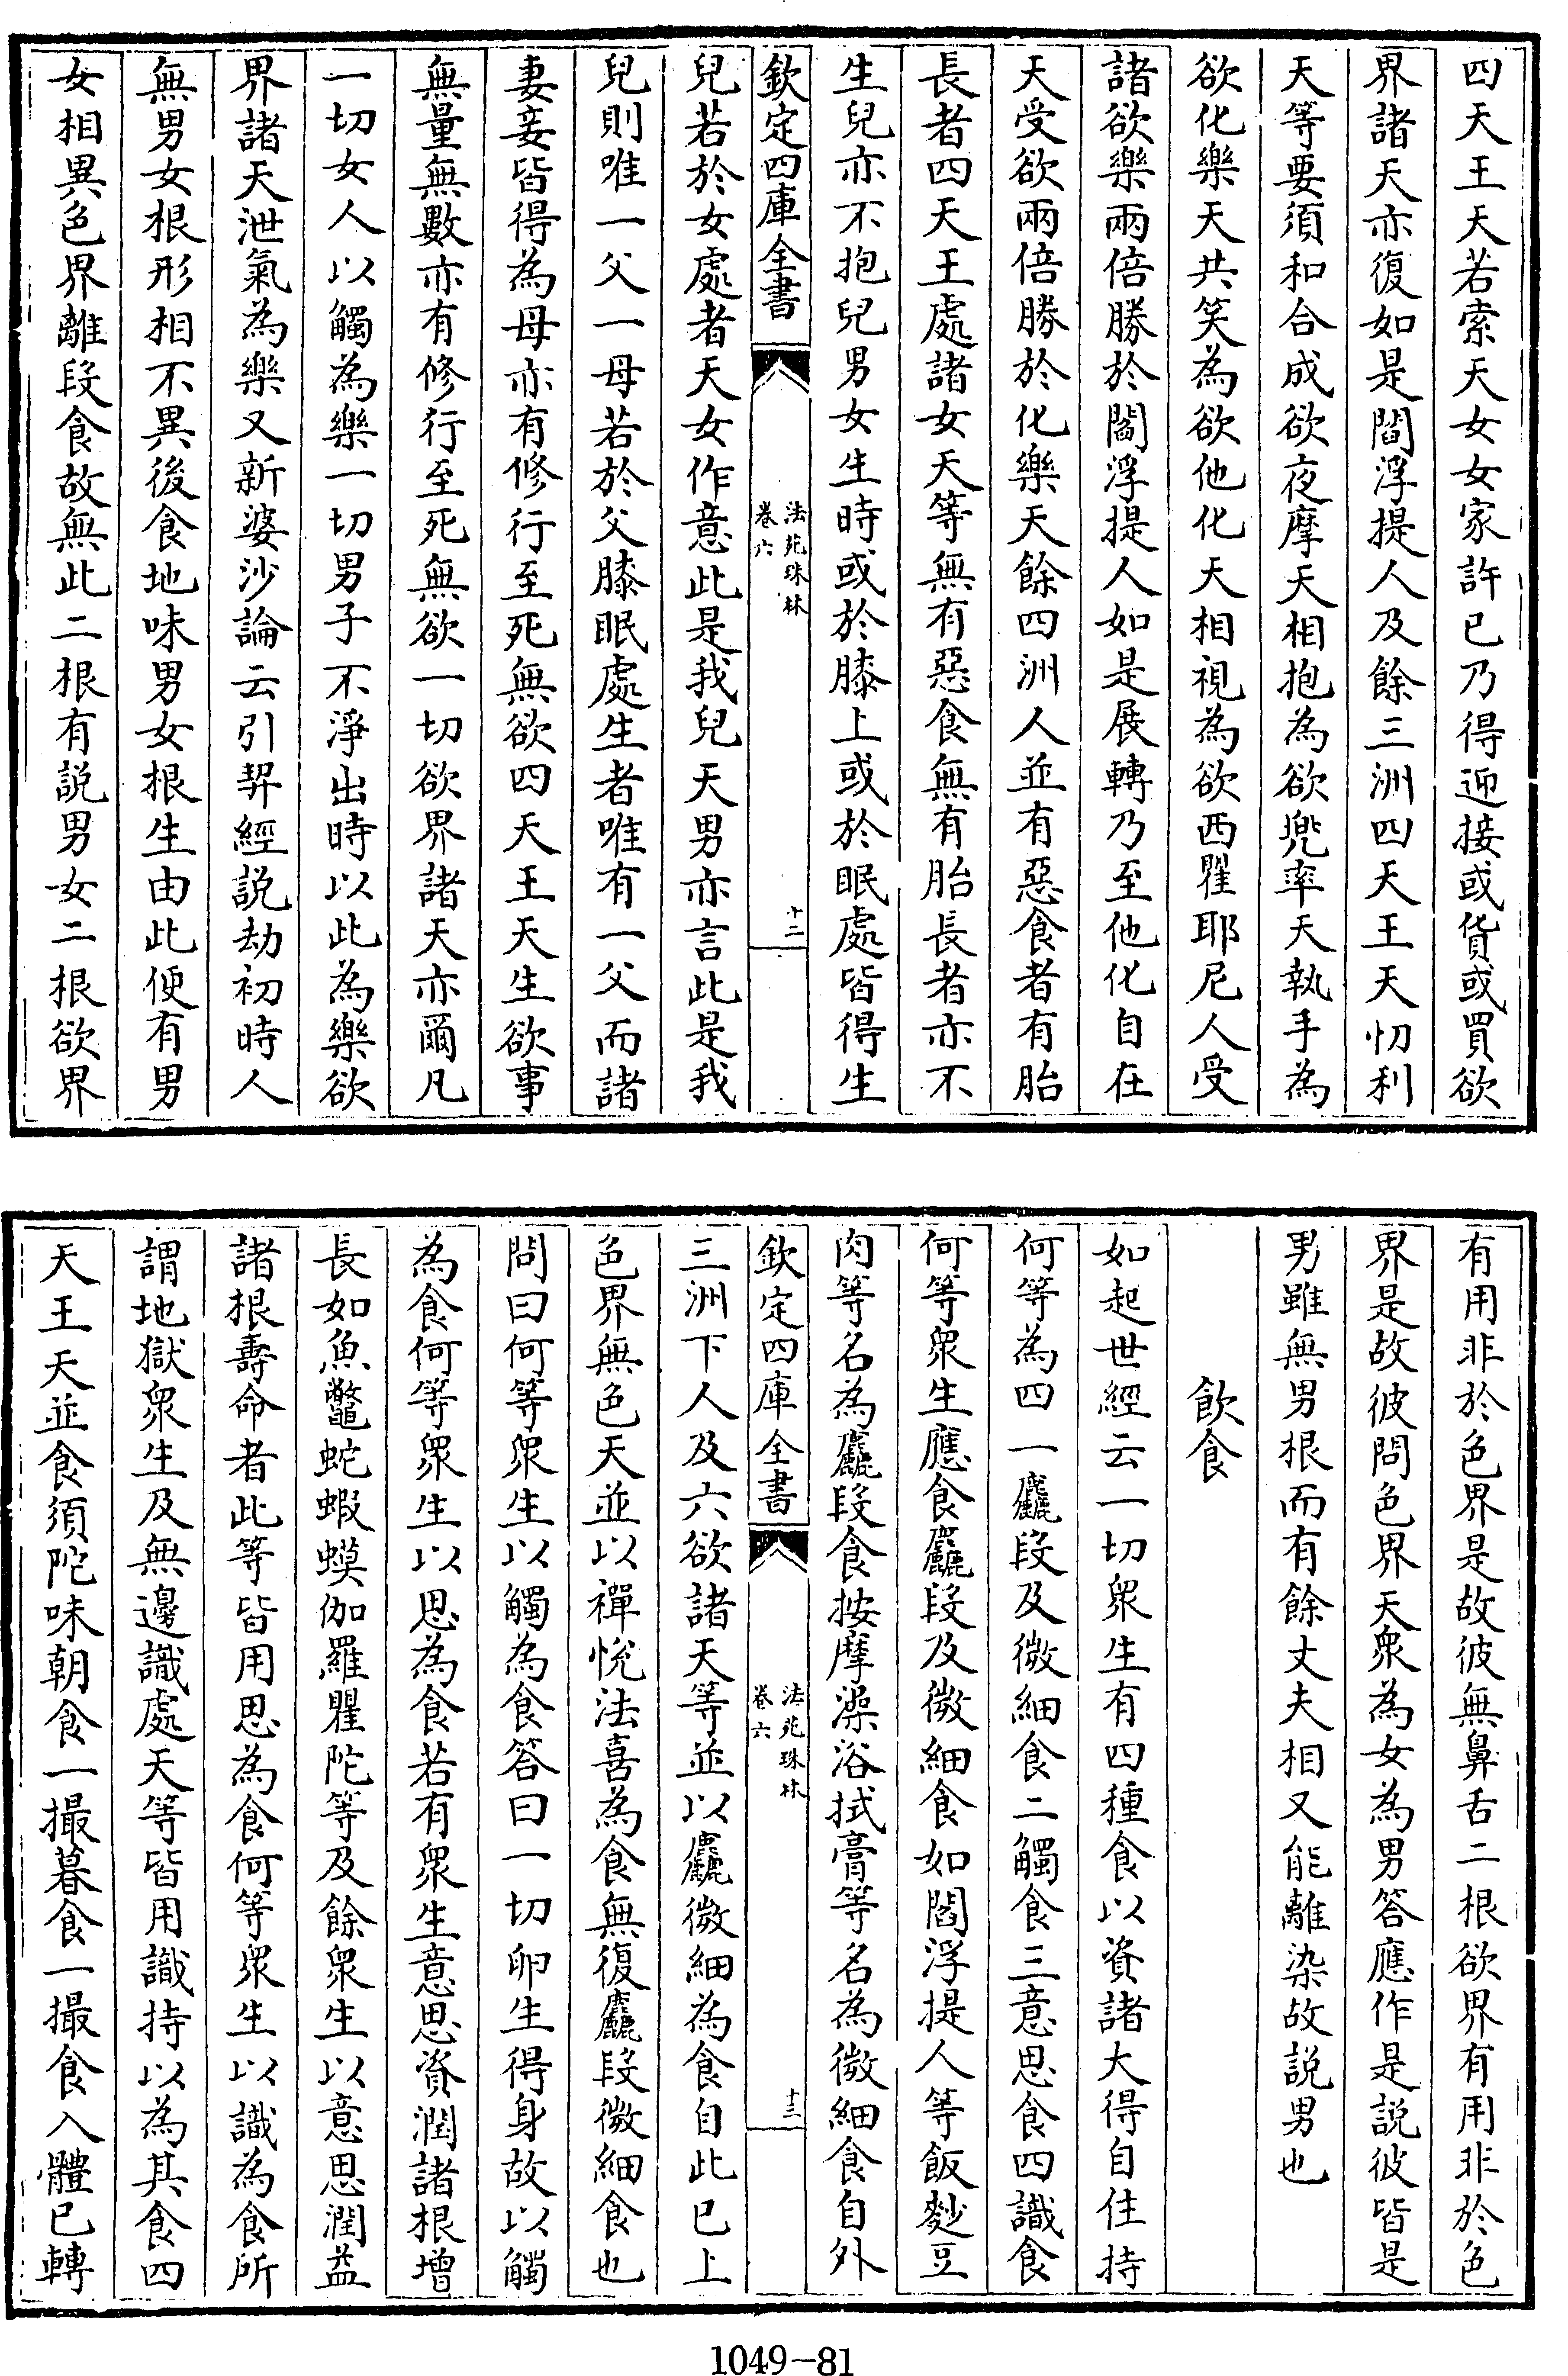 四天王天若索天女女家許已乃得迎接或貨或買欲
界諸天亦復如是閻浮提人及餘三洲四天王天忉利
天等要須和合成欲夜摩天相抱為欲兜率天執手為
欲化樂天共笑為欲他化天相視為欲西瞿耶尼人受
諸欲樂兩倍勝於閻浮提人如是展轉乃至他化自在
天受欲兩倍勝於化樂天餘四洲人並有惡食者有胎
長者四天王處諸女天等無有惡食無有胎長者亦不
生兒亦不抱兒男女生時或於膝上或於眠處皆得生
欽定四庫全書
法苑珠林
卷六
十二
兒若於女處者天女作意此是我兒天男亦言此是我
兒則唯一父一母若於父膝眠處生者唯有一父而諸
妻妾皆得為母亦有修行至死無欲四天王天生欲事
無量無數亦有修行至死無欲一切欲界諸天亦爾凡
一切女人以觸為樂一切男子不淨出時以此為樂欲
界諸天泄氣為樂又新婆沙論云引契經説劫初時人
無男女根形相不異後食地味男女根生由此便有男
女相異色界離段食故無此二根有説男女二根欲界
有用非於色界是故彼無鼻舌二根欲界有用非於色
界是故彼問色界天衆為女為男答應作是説彼皆是
男雖無男根而有餘丈夫相又能離染故説男也
飲食
如起世經云一切衆生有四種食以資諸大得自住持
何等為四一麤段及微細食二觸食三意思食四識食
何等衆生應食麤段及微細食如閻浮提人等飯麨豆
肉等名為麤段食按摩澡浴拭膏等名為微細食自外
欽定四庫全書
法苑珠林
卷六
十三
三洲下人及六欲諸天等並以麤微細為食自此已上
色界無色天並以禪悅法喜為食無復麤段微細食也
問曰何等衆生以觸為食答曰一切卵生得身故以觸
為食何等衆生以思為食若有衆生意思資潤諸根增
長如魚鼈蛇蝦蟆伽羅瞿陀等及餘衆生以意思潤益
諸根壽命者此等皆用思為食何等衆生以識為食所
謂地獄衆生及無邊識處天等皆用識持以為其食四
天王天並食須陀味朝食一撮暮食一撮食入體已轉
1049-81